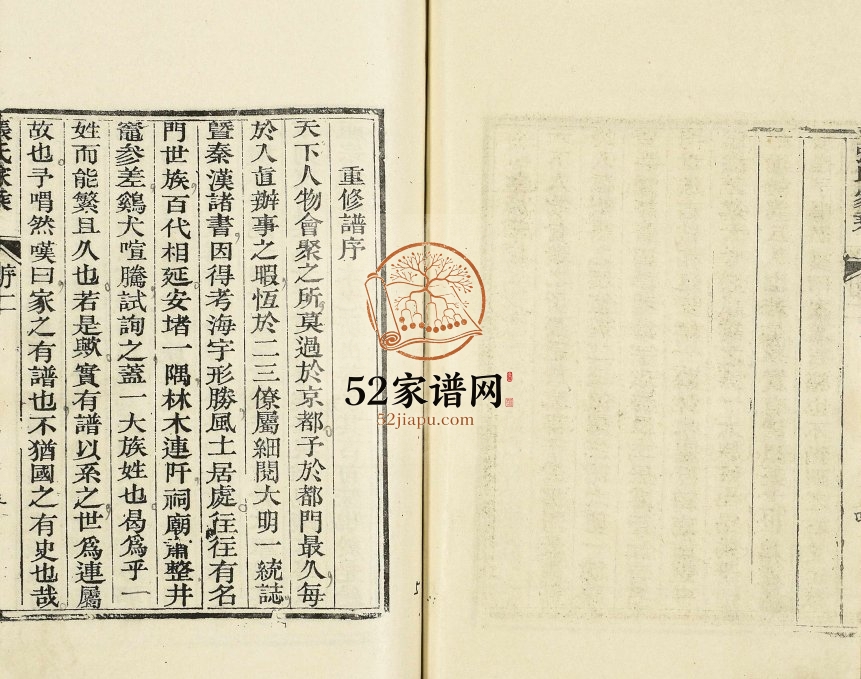 重修譜序
天下人物會聚之所莫過於京都予於都門最久每
於入直辦事之暇恆於二三僚屬細閱大明一統誌
曁秦漢諸書因得考海宇形勝風土居處往往有名
門世族百代相延安堵一隅林木連阡祠廟肅整井
竈參差鷄犬喧騰試詢之蓋一大族姓也曷爲乎一
姓而能繁且久也若是歟實有譜以系之世爲連屬
故也予喟然嘆曰家之有譜也不猶國之有史也哉
張氏家
序二
52家谱网
52jiapu.com